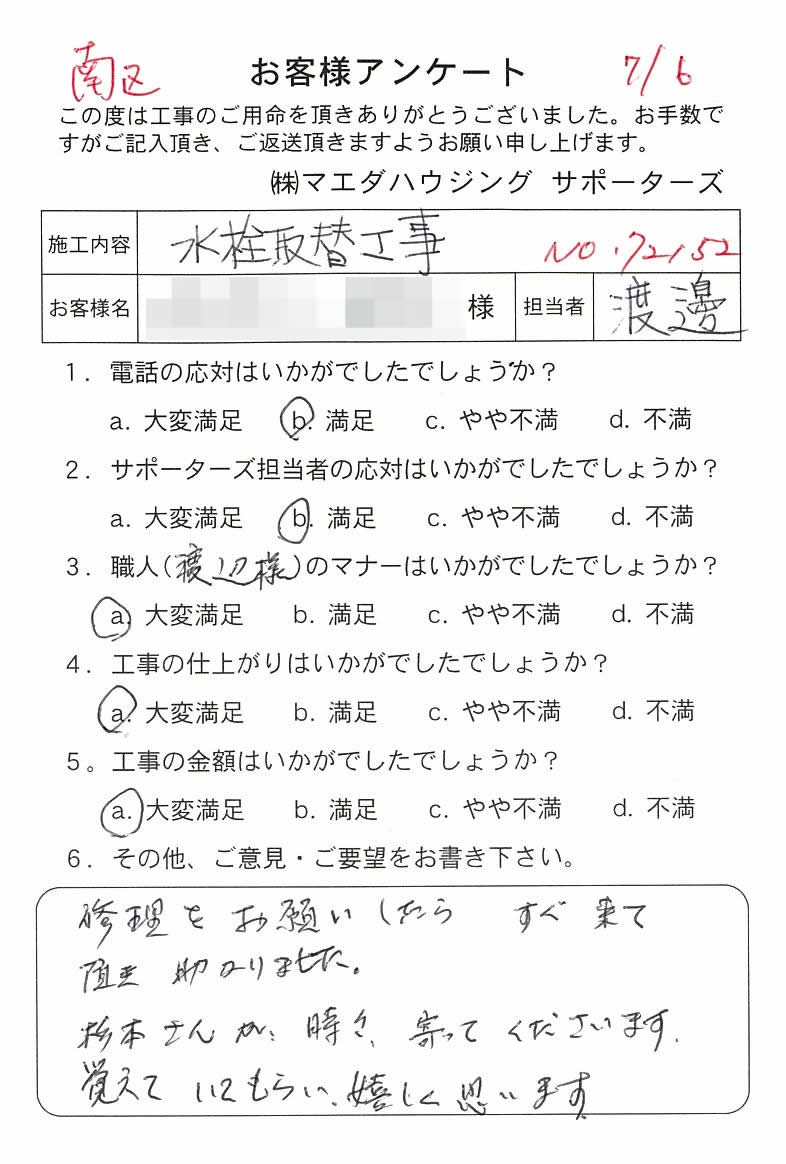 南区 お客様アンケート 7/6
この度は工事のご用命を頂きありがとうございました。お手数で
すがご記入頂き、ご返送頂きますようお願い申し上げます。
㈱マエダハウジング サポーターズ
施工内容 水栓取替工事 NO.72152
お客様名 様 担当者 渡邊
1. 電話の応対はいかがでしたでしょうか？
a. 大変満足 b. 満足 c. やや不満 d. 不満
2. サポーターズ担当者の応対はいかがでしたでしょうか？
a. 大変満足 b. 満足 c. やや不満 d. 不満
3. 職人(渡辺様)のマナーはいかがでしたでしょうか？
a. 大変満足 b. 満足 c. やや不満 d. 不満
4. 工事の仕上がりはいかがでしたでしょうか？
a. 大変満足 b. 満足 c. やや不満 d. 不満
5。工事の金額はいかがでしたでしょうか？
a. 大変満足 b. 満足 c. やや不満 d. 不満
6. その他、ご意見・ご要望をお書き下さい。
修理をお願いしたら すぐ来て
頂き 助かりました。
杉本さんが、時々、寄ってくださいます。
覚えていてもらい、嬉しく思います